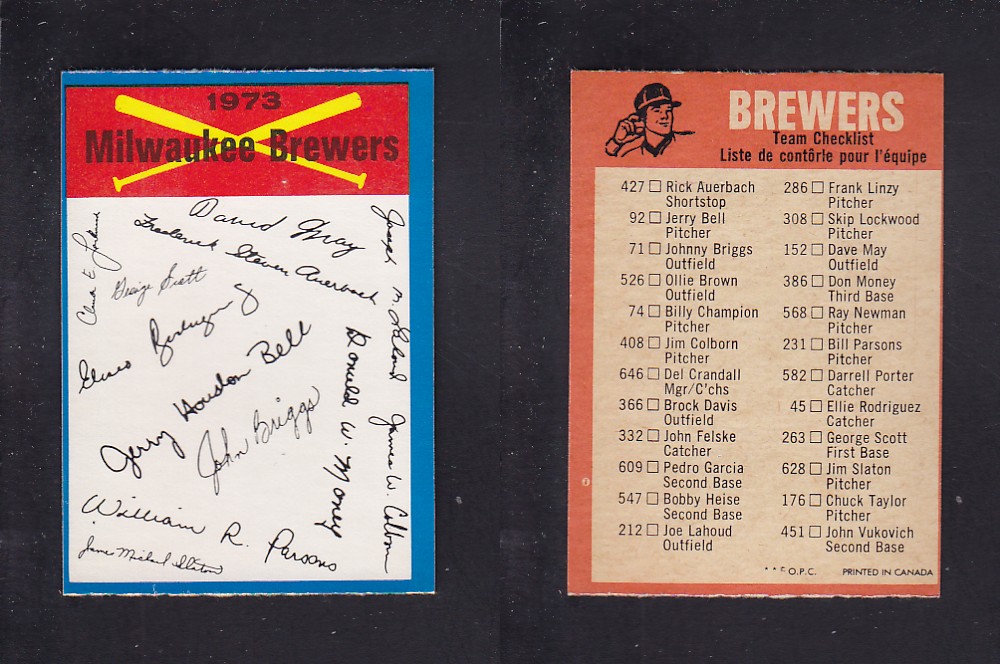 1973
Milwaukee Brewers
David Gray
Frederick Steven Auerbach
George Scott
Eliseo Rodriguez
Jerry Houston Bell
John Briggs
Donald W. Money
James W. Colborn
William R. Parsons
James Michael Slaton
BREWERS
Team Checklist
Liste de contôrle pour l'équipe
427 □ Rick Auerbach
Shortstop
92 □ Jerry Bell
Pitcher
71 □ Johnny Briggs
Outfield
526 □ Ollie Brown
Outfield
74 □ Billy Champion
Pitcher
408 □ Jim Colborn
Pitcher
646 □ Del Crandall
Mgr/C'chs
366 □ Brock Davis
Outfield
332 □ John Felske
Catcher
609 □ Pedro Garcia
Second Base
547 □ Bobby Heise
Second Base
212 □ Joe Lahoud
Outfield
286 □ Frank Linzy
Pitcher
308 □ Skip Lockwood
Pitcher
152 □ Dave May
Outfield
386 □ Don Money
Third Base
568 □ Ray Newman
Pitcher
231 □ Bill Parsons
Pitcher
582 □ Darrell Porter
Catcher
45 □ Ellie Rodriguez
Catcher
263 □ George Scott
First Base
628 □ Jim Slaton
Pitcher
176 □ Chuck Taylor
Pitcher
451 □ John Vukovich
Second Base
O.P.C. PRINTED IN CANADA